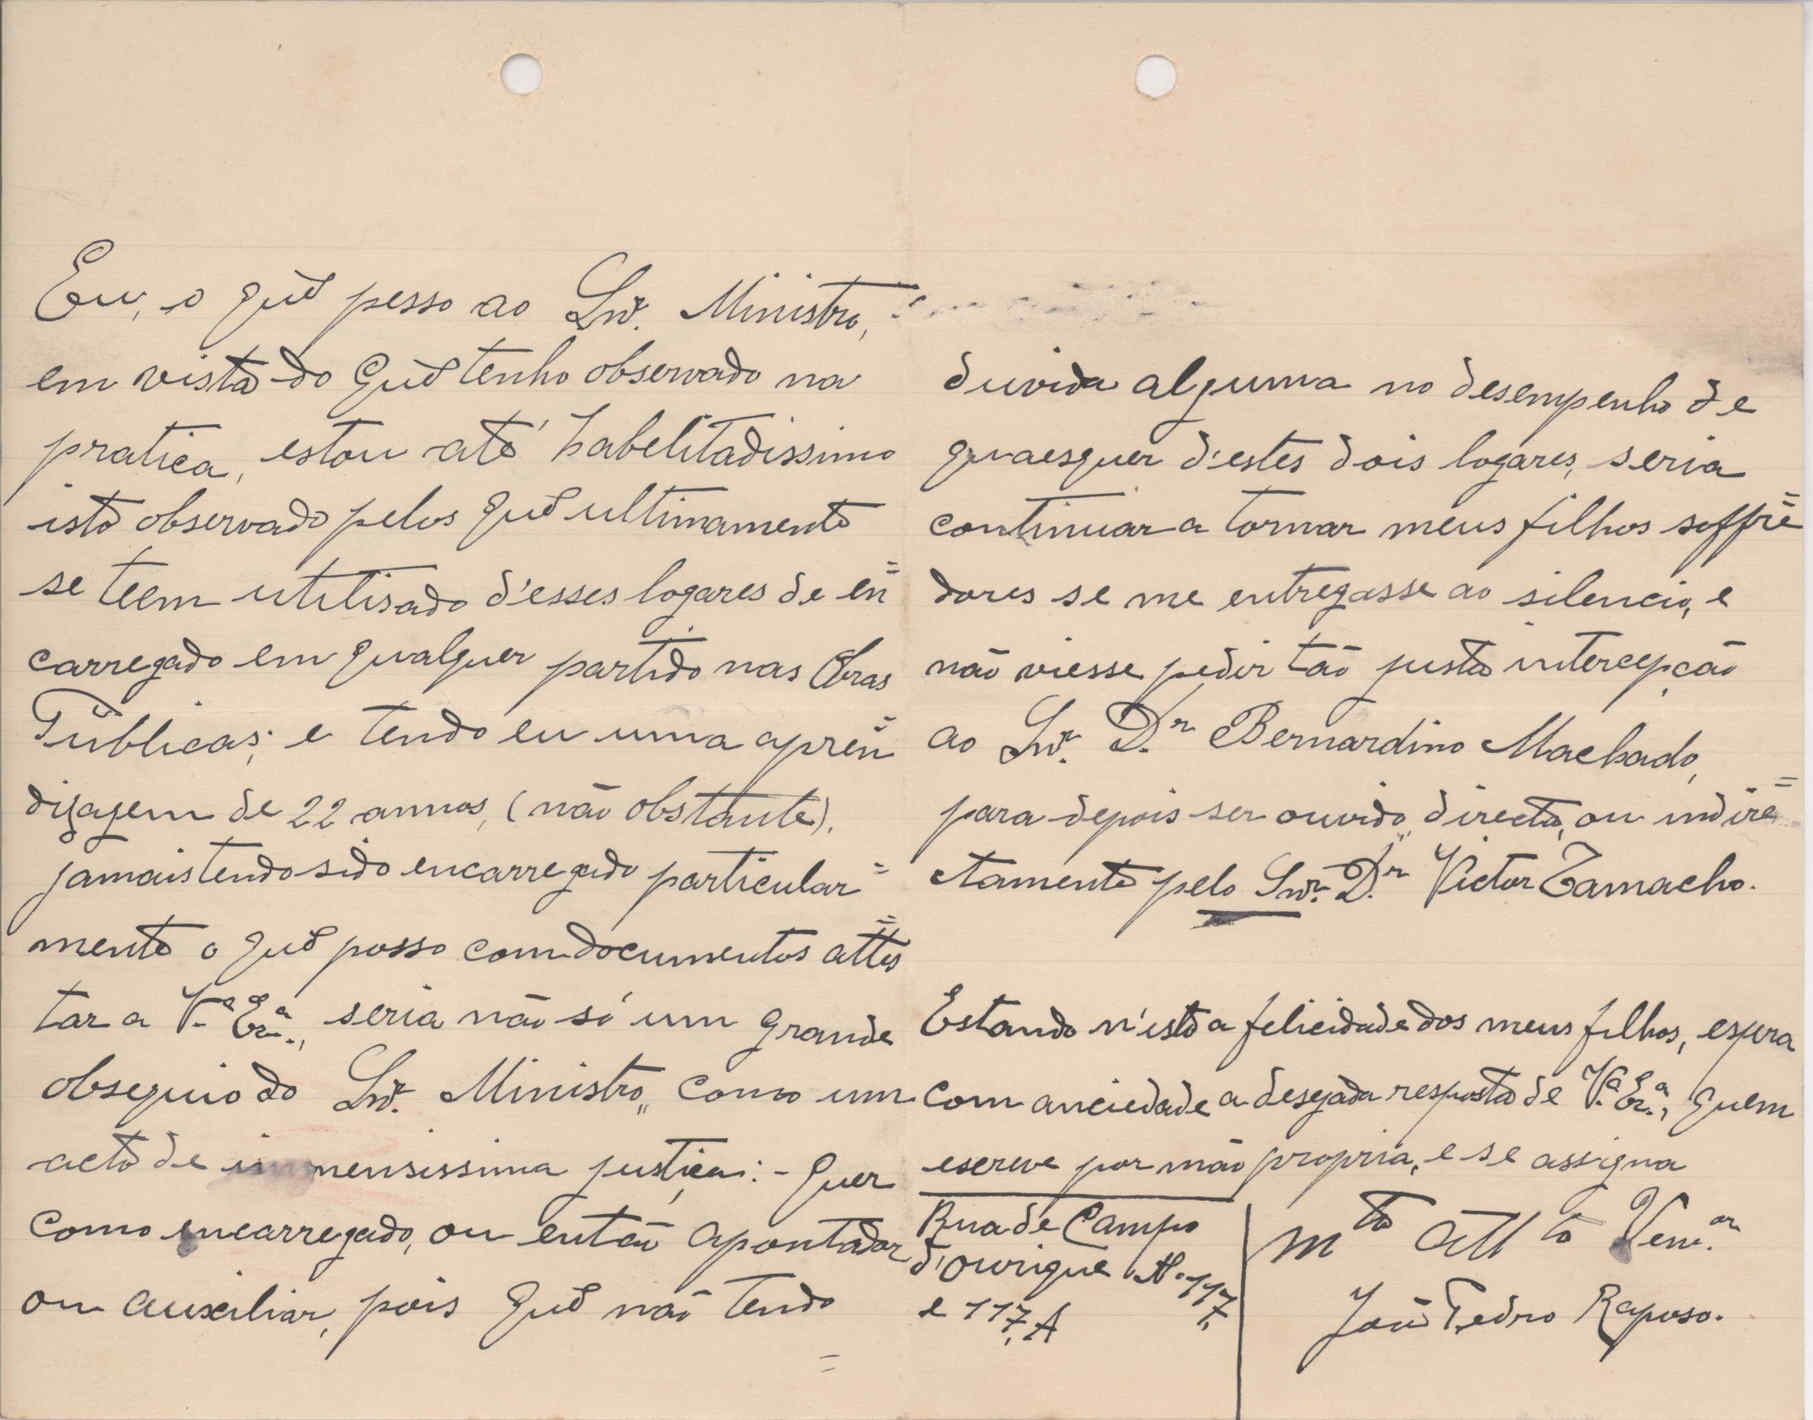 Eu, o que pesso ao Snr. Ministro,
em vista do que tenho observado na
pratica, estou até habelitadissimo
isto observado pelos que ultimamente
se teem utilisado d'esses logares de en=
carregado em qualquer partido nas Obras
Publicas; e tendo eu uma apren=
dizagem de 22 annos, (não obstante),
jamais tendo sido encarregado particular=
mente o que posso com documentos attes=
tar a V.ª Ex.ª, seria não só um grande
obsequio do Snr. Ministro,, como um
acto de immensissima justiça: - quer
como encarregado, ou então apontador
ou auxiliar, pois que não tendo
=
duvida alguma no desempenho de
quaesquer d'estes dois logares, seria
continuar a tornar meus filhos soffre=
dores se me entregasse ao silencio, e
não viesse pedir tão justa intercepção
ao Snr. D.r Bernardino Machado,
para depois ser ouvido,, directa, ou indire=
ctamente pelo Snr. D.r Victor Zamacho.
Estando n'isto a felicidade dos meus filhos, espera
com anciedade a desejada resposta de V.ª Ex.ª, quem
escreve por mão propria, e se assigna
Rua de Campo
d'Ourique N.º 117,
e 117, A
m.to att.to Ven.or
João Pedro Raposo.